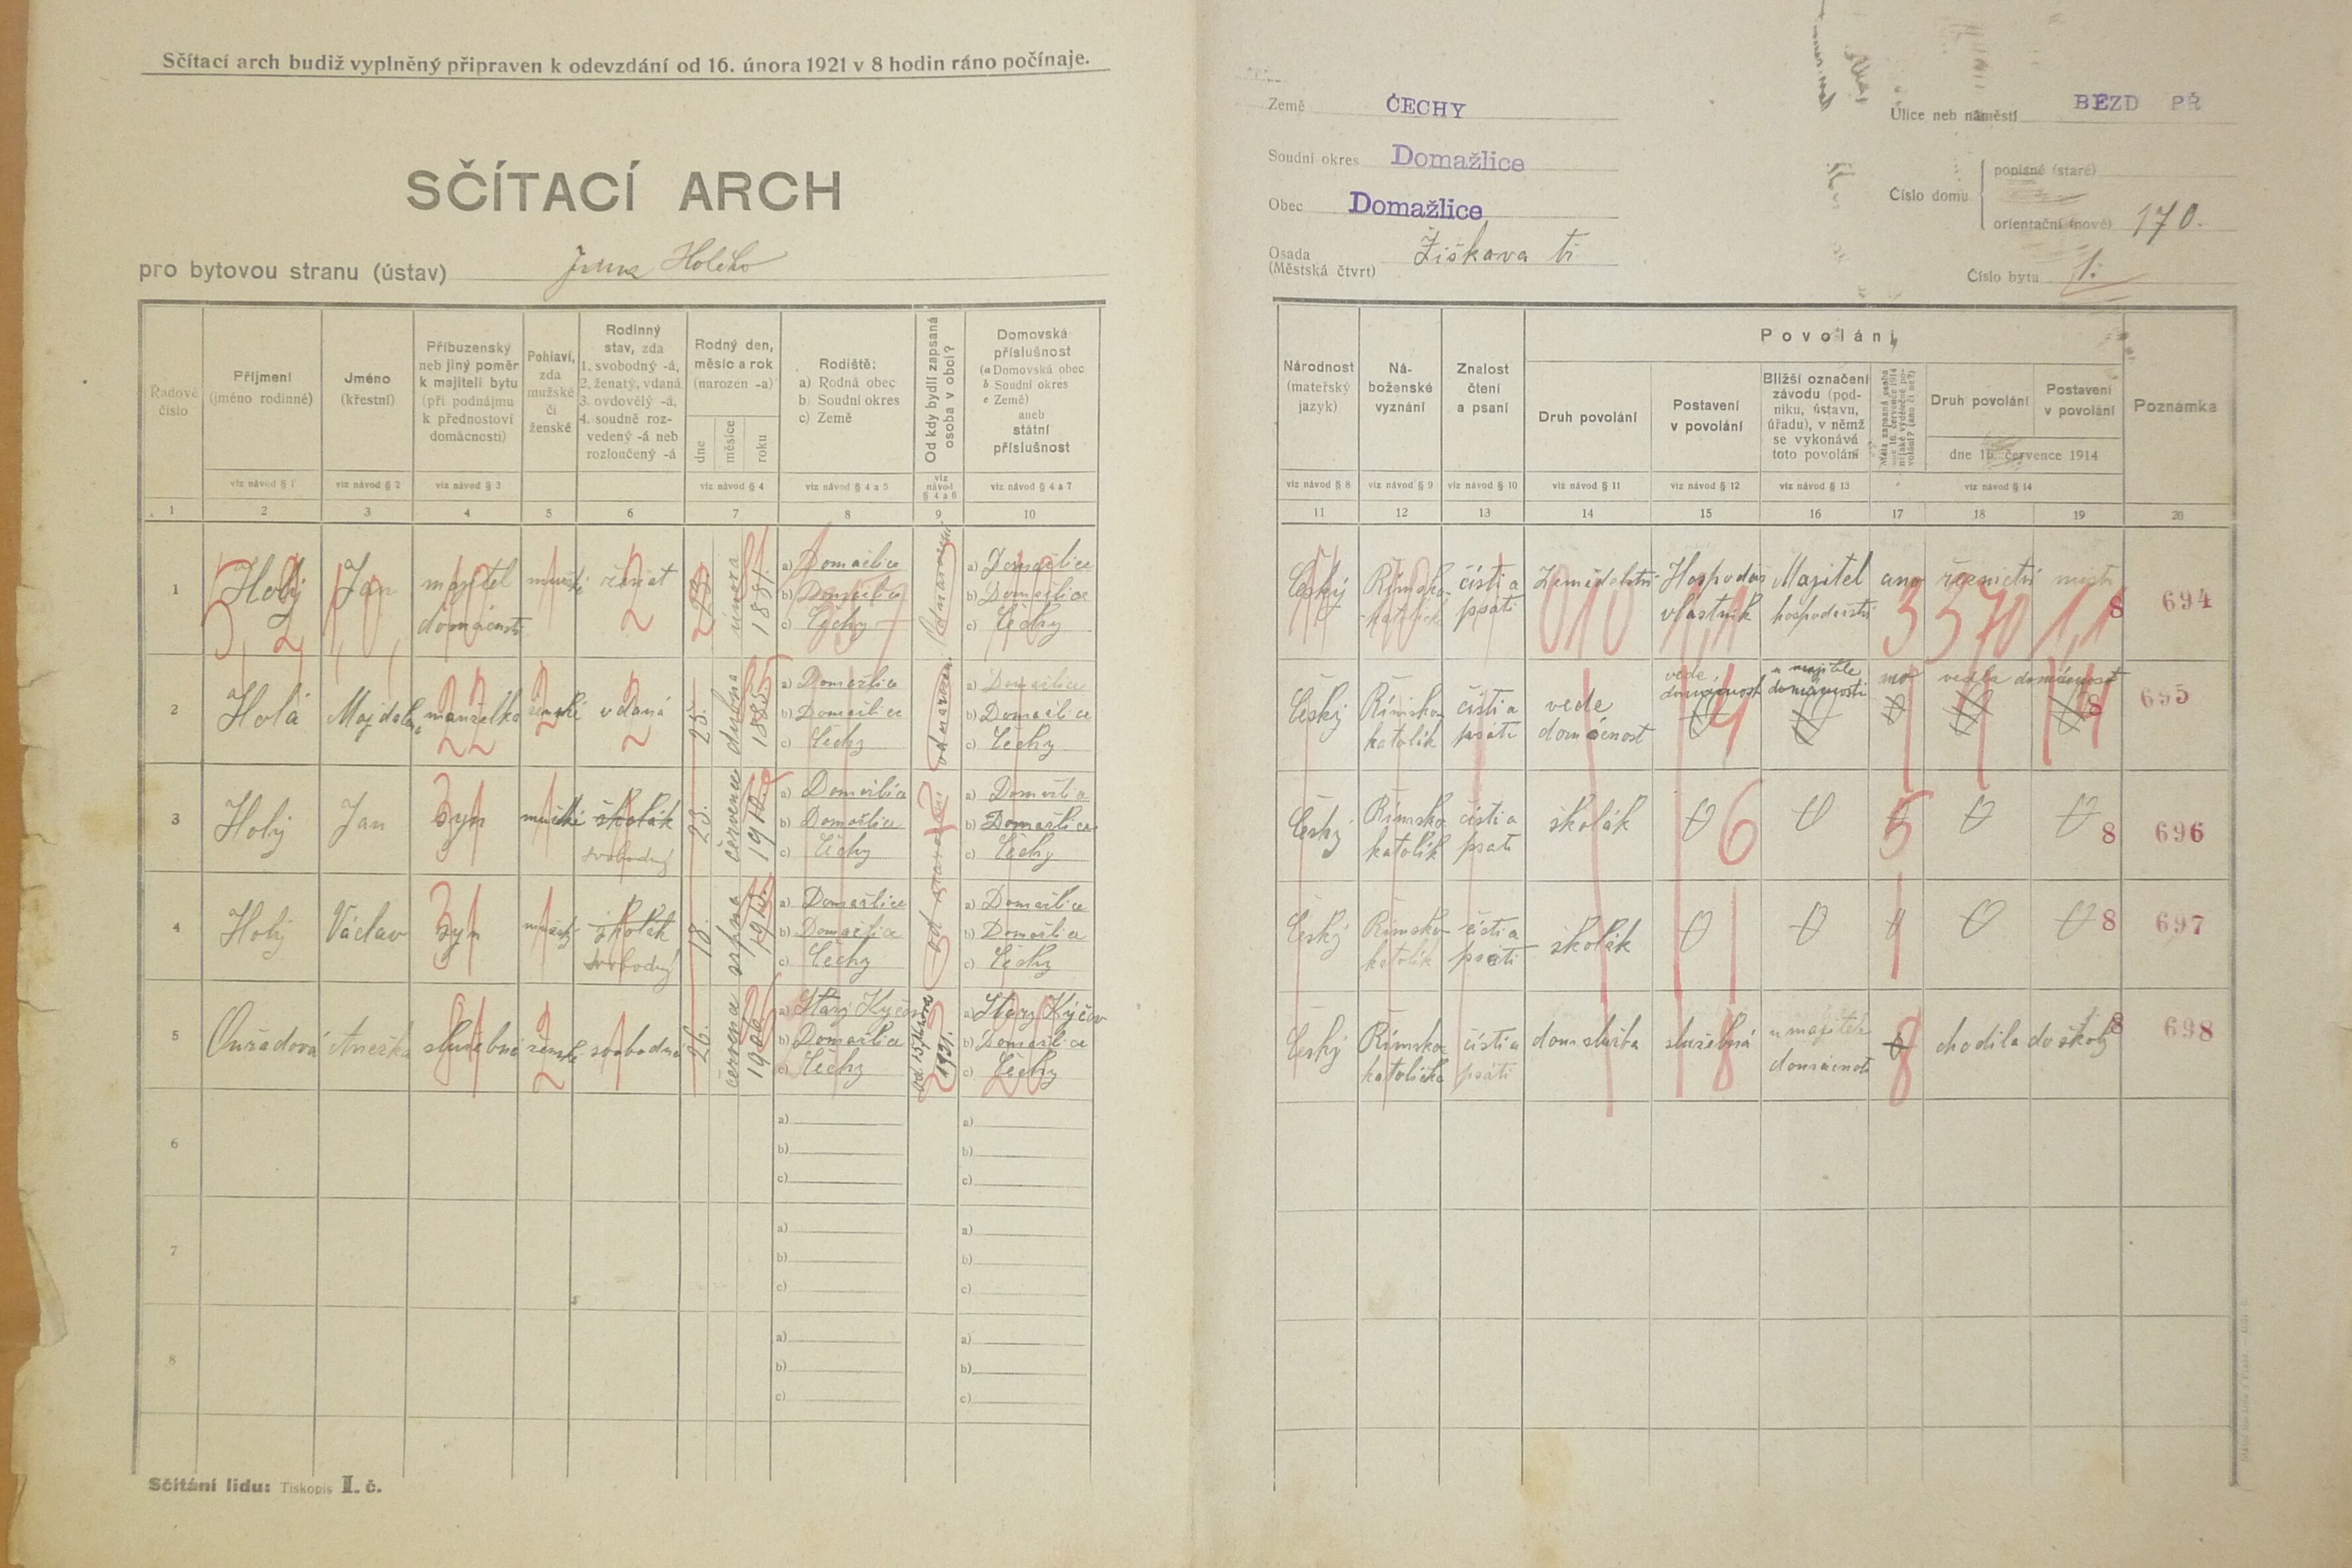 Sčítací arch budiž vyplněný připraven k odevzdání od 16. února 1921 v 8 hodin ráno počínaje.
SČÍTACÍ ARCH
pro bytovou stranu (ústav) Jana Holého
Země ČECHY
Soudní okres Domažlice
Obec Domažlice
Osada (Městská čtvrt) Žižkova tř.
Ulice neb náměstí BEZD PŘ
Číslo domu
popisné (staré)
orientační (nové) 170.
Číslo bytu 1.
Řadové číslo
Příjmení (jméno rodinné)
Jméno (křestní)
Příbuzenský neb jiný poměr k majiteli bytu (při podnájmu k přednostovi domácnosti)
Pohlaví, zda mužské či ženské
Rodinný stav, zda 1. svobodný -á, 2. ženatý, vdaná, 3. ovdovělý -á, 4. soudně rozvedený -á neb rozloučený -á
Rodný den, měsíc a rok (narozen -a)
dne měsíce roku
Rodiště: a) Rodná obec b) Soudní okres c) Země
Od kdy bydlí zapsaná osoba v obci?
Domovská příslušnost (a Domovská obec b Soudní okres c Země) aneb státní příslušnost
Národnost (mateřský jazyk)
Náboženské vyznání
Znalost čtení a psaní
Povolání
Druh povolání
Postavení v povolání
Bližší označení závodu (podniku, ústavu, úřadu), v němž se vykonává toto povolání
Měla zapsaná osoba dne 16. července 1914 nějaké výdělečné povolání? (ano či ne?)
Druh povolání
Postavení v povolání
dne 16. července 1914
Poznámka
viz návod § 1 viz návod § 2 viz návod § 3 viz návod § 4 viz návod § 4 a 5 viz návod § 4 a 6 viz návod § 4 a 7
viz návod § 8 viz návod § 9 viz návod § 10 viz návod § 11 viz návod § 12 viz návod § 13 viz návod § 14
1 2 3 4 5 6 7 8 9 10
11 12 13 14 15 16 17 18 19 20
1 Holý Jan majitel domácnosti mužské ženat 23. února 1881.
a) Domažlice b) Domažlice c) Čechy
a) Domažlice b) Domažlice c) Čechy
Český Římsko-katolick čísti a psáti Zemědělství Hospodář vlastník Majitel hospodářství ano řeznictví 8 694
2 Holá Majdalena manželka ženské vdaná 25. dubna 1885.
a) Domažlice b) Domažlice c) Čechy
od narození
a) Domažlice b) Domažlice c) Čechy
Český Římsko katolík čísti a psáti vede domácnost vede domácnost u majitele domácnosti vedla domácnost 8 695
3 Holý Jan syn mužské školák svobodný 23. července
a) Domažlice b) Domažlice c) Čechy
a) Domažlice b) Domažlice c) Čechy
Český Římsko katolík čísti a psáti školák 0 6 0 5 0 0 8 696
4 Holý Václav syn mužský školák svobodný 18. srpna
a) Domažlice b) Domažlice c) Čechy
a) Domažlice b) Domažlice c) Čechy
Český Římsko-katolík čísti a psáti školák 0 0 0 0 0 8 697
5 Anežka služebná ženské svobodná 26. června 1906
a) Starý Kýčov b) Domažlice c) Čechy
od 15. 1921.
a) Starý Kýčov b) Domažlice c) Čechy
Český Římsko katolička čísti a psáti dom. služba služebná u majitele domácnosti chodila do školy 8 698
6 a) b) c) a) b) c)
7 a) b) c) a) b) c)
8 a) b) c) a) b) c)
Sčítání lidu: Tiskopis I. č.